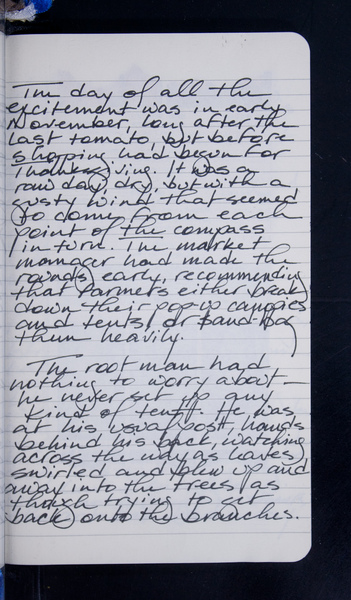 The day of all the
excitement was in early
November, long after the
last tomato, but before
shopping had begun for
Thanksgiving. It was a
raw day, dry, but with a
gusty wind that seemed
to come from each
point of the compass
in turn. The market
manager had made the
rounds early, recommending
that farmers either break
down their pop-up canopies
and tents, or sand-bag
them heavily.
The root man had
nothing to worry about –
he never set up any
kind of tent. He was
at his usual post, hands
behind his back, watching
across the way as leaves
swirled and blew up and
away into the trees as
though trying to get
back onto the branches.